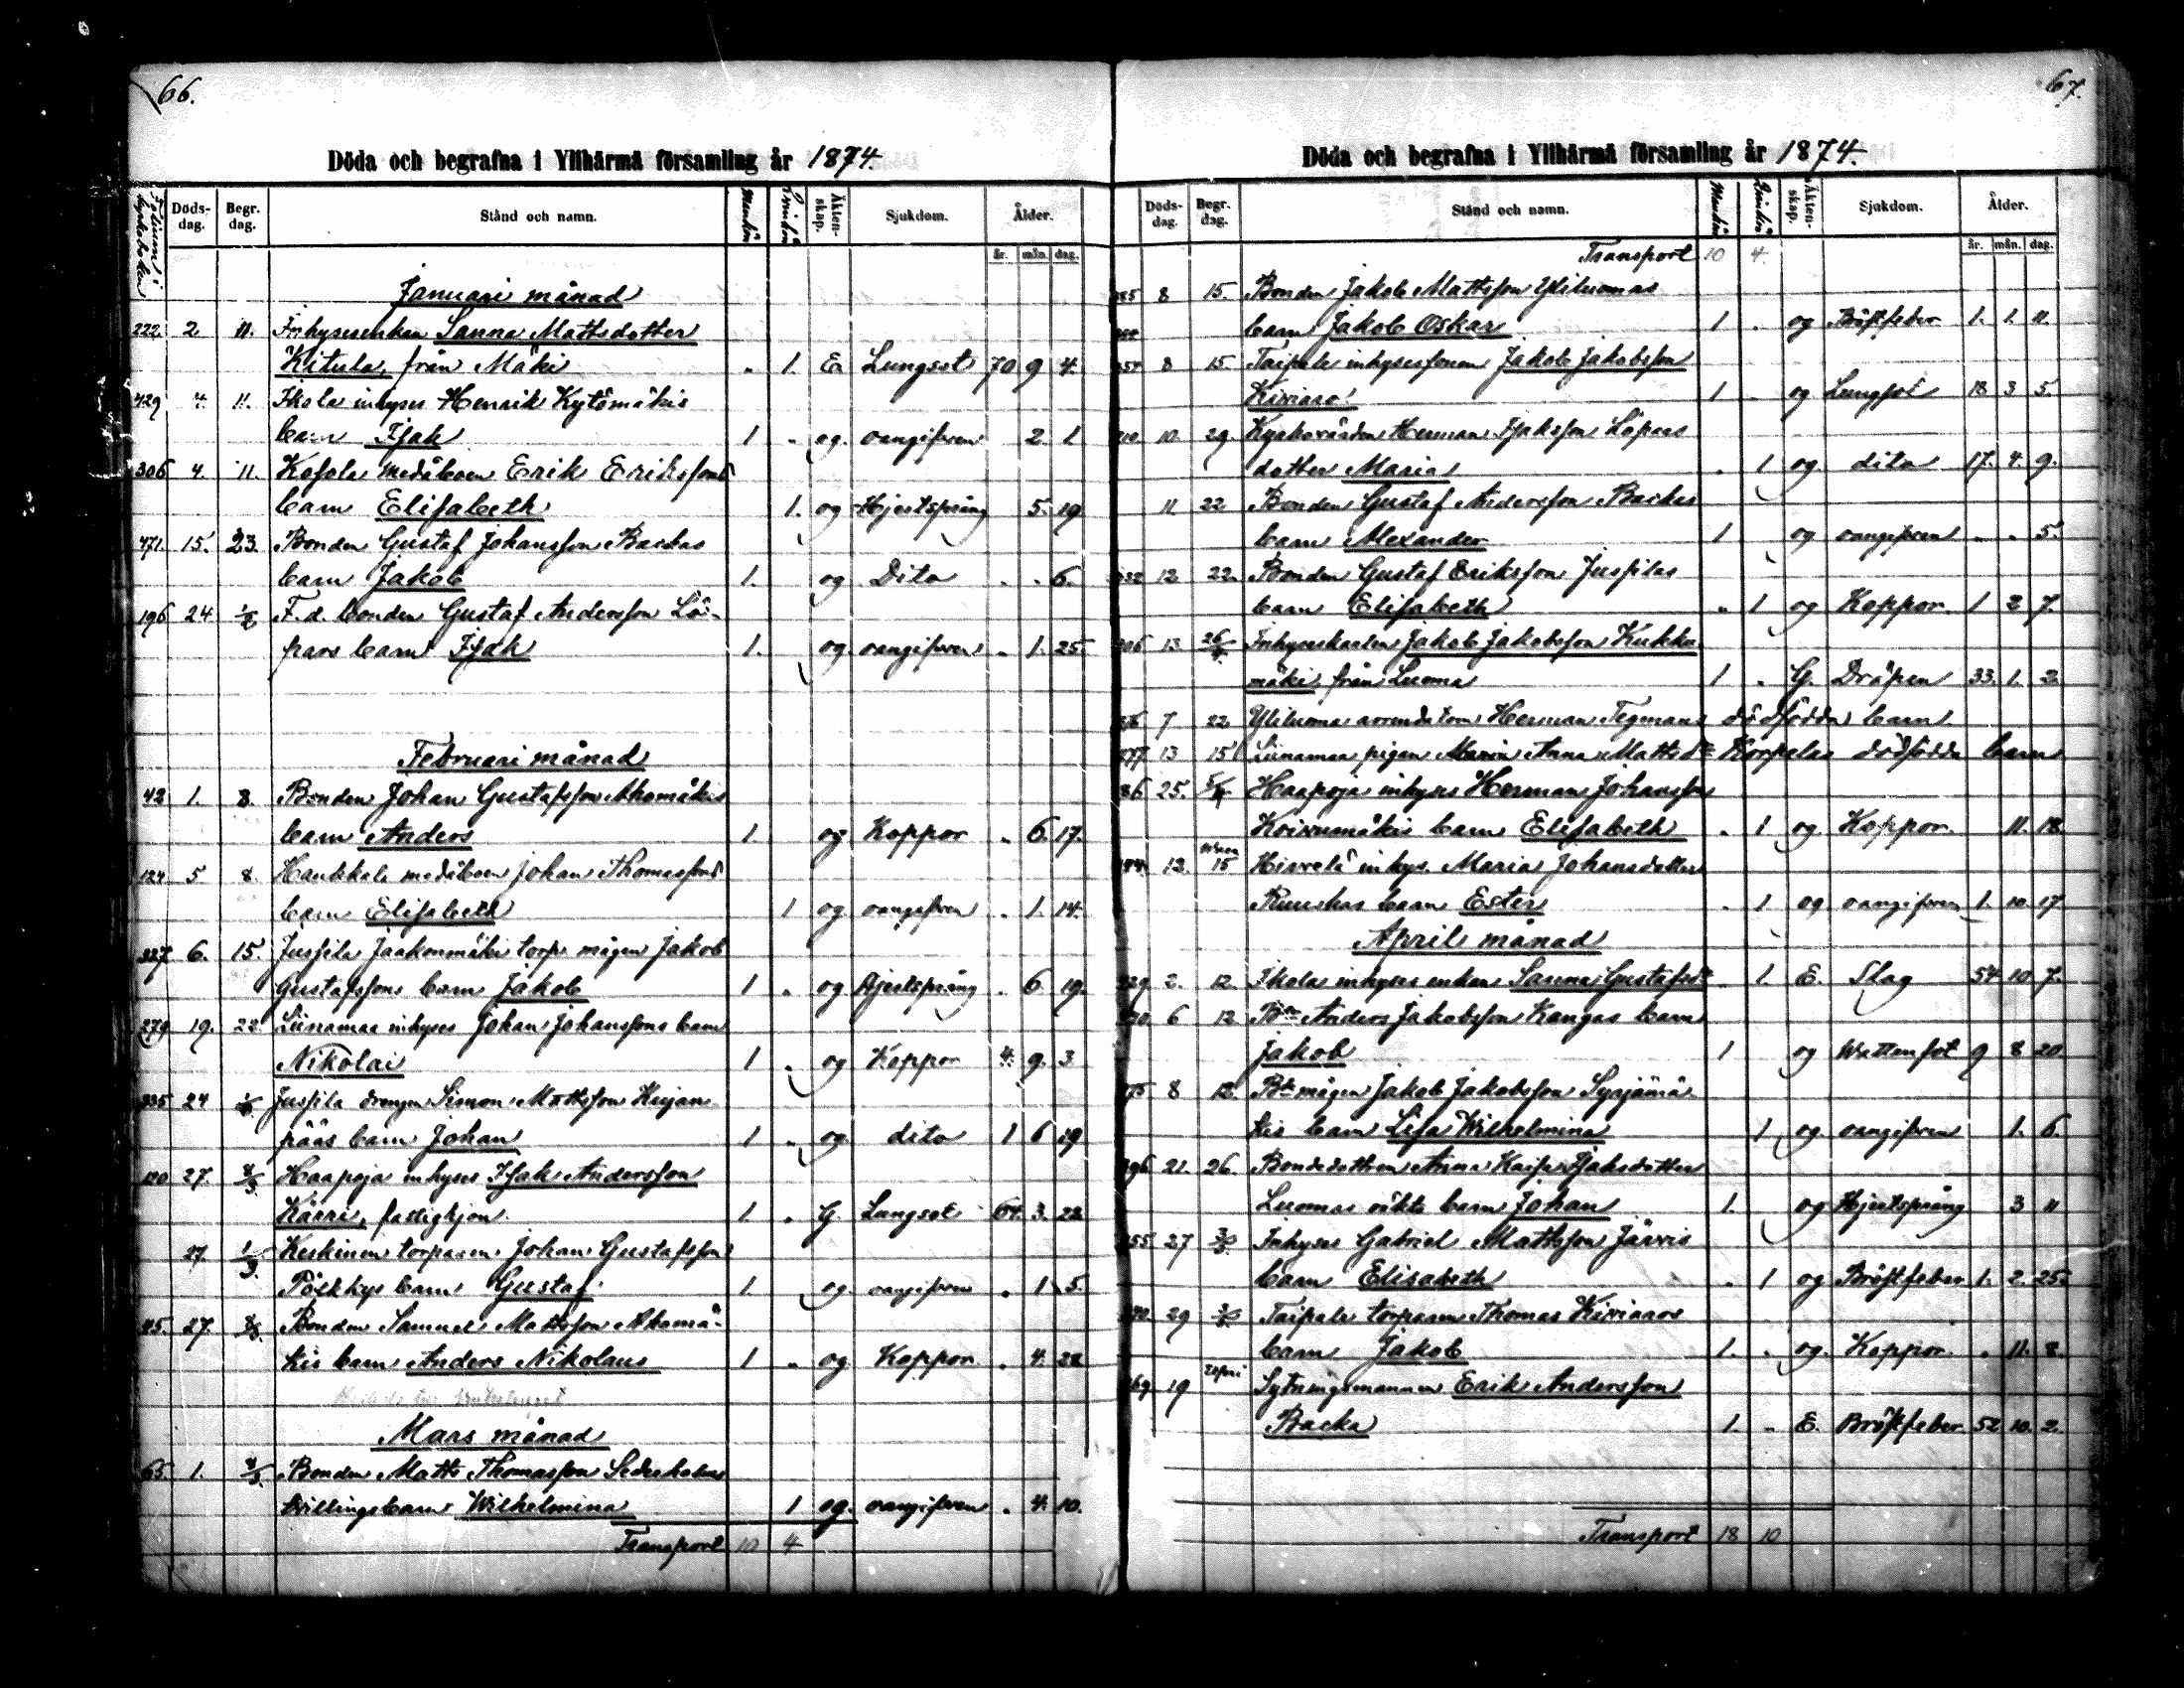 66.
Döda och begrafna i Ylihärmä församling år 1874.
Döds-dag. Begr. dag. Stånd och namn. Mankön Qvinkön Äkten-skap. Sjukdom. Ålder.
år. mån. dag.
Januari månad
222 2. 11. Inhysesenkan Sanna Mattsdotter
Kitula, från Mäki " 1. E Lungsot 70 9 4.
429 4. 11. Ikola inhyses Henrik Kytömäkis
barn Isak 1 " og. oangifven 2. 1
306 4. 11. Kosola medåboen Erik Erikssons
barn Elisabeth 1. og Hjertsprång 5. 19
471. 15. 23. Bonden Gustaf Johansson Backas
barn Jakob 1. og Dito . . 6.
196 24. 1/2 F. d. bonden Gustaf Andersson Lö-
pars barn Isak 1. og oangifven . 1. 25.
Februari månad
42 1. 8. Bonden Johan Gustafsson Ahomäkis
barn Anders 1. og Koppor . 6. 17.
124 5 8. Haukkala medåboen Johan Thomassons
barn Elisabeth 1 og oangifven . 1. 14.
327. 6. 15. Jussila Jaakonmäki torp. mågen Jakob
Gustafssons barn Jakob 1 . og Hjertsprång . 6. 19.
279 19. 22. Liinamaa inhyses Johan Johanssons barn
Nikolai 1 . og Koppor 4. 9. 3
335 24 Jussila drengen Simon Mattsson Kujan
pääs barn Johan 1 . og dito 1 6 19
120 27. 8/3. Haapoja inhyses Isak Andersson
Kärri, fattighjon. 1. . G. Lungsot 64. 3. 22
27. 1/3. Keskinen torparen Johan Gustafsson
Pölkkys barn Gustaf 1 og oangifven . 1 5.
45. 27. 8/3. Bonden Samuel Mattsson Ahomä-
kis barn Anders Nikolaus 1 . og Koppor . 4. 22
Mars månad
65. 1. 8/3. Bonden Matts Thomasson Sederholms
tvillingebarn Wilhelmina 1 og. oangifven . 4. 10.
Transport 10 4
67.
Döda och begrafna i Ylihärmä församling år 1874.
Döds-dag. Begr. dag. Stånd och namn. Mankön Qvinkön Äkten-skap. Sjukdom. Ålder.
år. mån. dag.
Transport 10 4.
8 15. Bonden Jakob Mattsson Yliluomas
barn Jakob Oskar 1 . og Bröstfeber 1. 1. 11.
8 15. Taipale inhysessonen Jakob Jakobsson
Kiviaro 1 . og Lungsot 18 3 5.
10. 29. Kyrkovärden Herman Isaksson Löpars
dotter Maria . 1 og dito 17. 4. 9.
11. 22 Bonden Gustaf Andersson Backas
barn Alexander 1 og oangifven . . 5.
12 22. Bonden Gustaf Eriksson Jussilas
barn Elisabeth " 1 og Koppor. 1 2 7.
13. 26/4. Inhyseskarlen Jakob Jakobsson Kukko
mäki, från Luoma 1 . G. Dräpen 33. 1. 2.
7 22. Yliluoma arrendatorn Herman Tegmans dödfödda barn
13 15 Liinamaa pigan Anna Matts dr Korpelas dödfödda barn
86 25. 5/4 Haapoja inhyses Herman Johansson
Koivumäkis barn Elisabeth . 1 og. Koppor. 11. 18.
12. 15 Hirvelä inhys. Maria Johansdotters
Ruuskas barn Ester . 1 og oangifven 1. 10. 17
April månad
2. 12. Ikola inhyses enkan Sanna Gustafsdr 1. E. Slag 54 10. 7.
6 12 Bdn Anders Jakobsson Kangas barn
Jakob 1 og Wattensot 9 8 20
8 12. Bde mågen Jakob Jakobsson Syrjämä
kis barn Lisa Wilhelmina 1 og oangifven 1. 6.
21. 26. Bondedottren Anna Kajsa Isaksdotter
Luomas oäkta barn Johan 1. og Hjertsprång 3 11
27 3/5. Inhyses Gabriel Mattsson Järvis
barn Elisabeth . 1 og Bröstfeber 1. 2. 25.
29 3/5. Taipale torparen Thomas Kiviaros
barn Jakob 1. . og. Koppor. . 11. 8.
69 19 Sytningsmannen Erik Andersson
Backa 1. . E. Bröstfeber 52 10. 2.
Transport 18 10